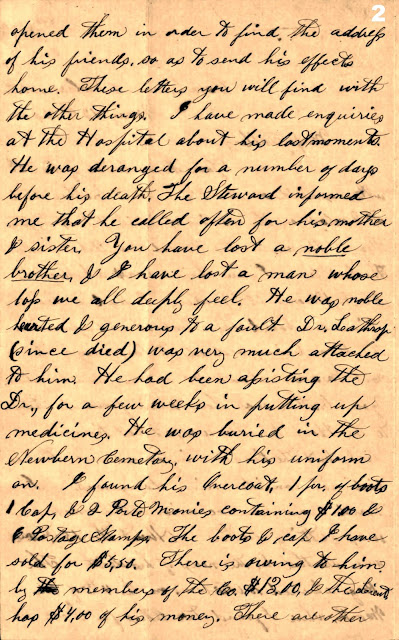 2
opened them in order to find, the address
of his friends, so as to send his effects
home. These letters you will find with
the other things. I have made enquiries
at the Hospital about his last moments.
He was deranged for a number of days
before his death. The Steward informed
me that he called often for his mother
& sister. You have lost a noble
brother, & I have lost a man whose
loss we all deeply feel. He was noble
hearted & generous to a fault. Dr. Leathrop
(since died) was very much attached
to him. He had been assisting the
Dr., for a few weeks in putting up
medicines. He was buried in the
Newbern Cemetar, with his uniform
on. I found his Overcoat, 1 pr. of boots
1 Cap, & 2 Port Monies containing $1.00 &
6 Postage Stamps. The boots & cap I have
sold for $5,50. There is owing to him,
by members of the Co. $13,00, & the
has $4,00 of his money. There are other